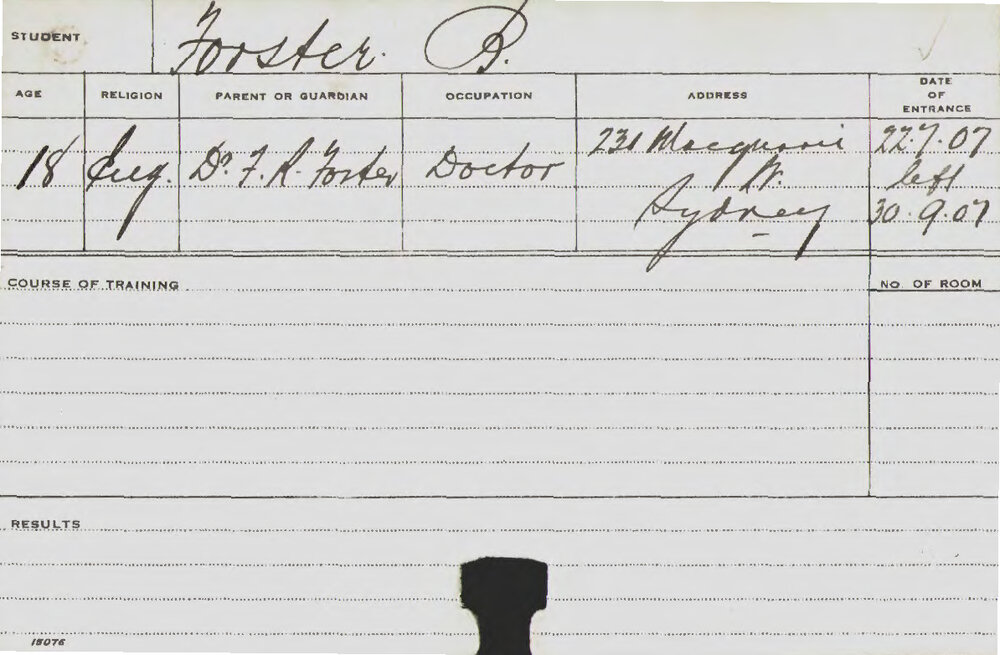 STUDENT Forster. B.
AGE RELIGION PARENT OR GUARDIAN OCCUPATION ADDRESS DATE OF ENTRANCE
18 Eng. Dr. F. R. Forster Doctor 231 Macquarie 22.7.07
St. left
Sydney 30.9.07
COURSE OF TRAINING NO. OF ROOM
RESULTS
15076